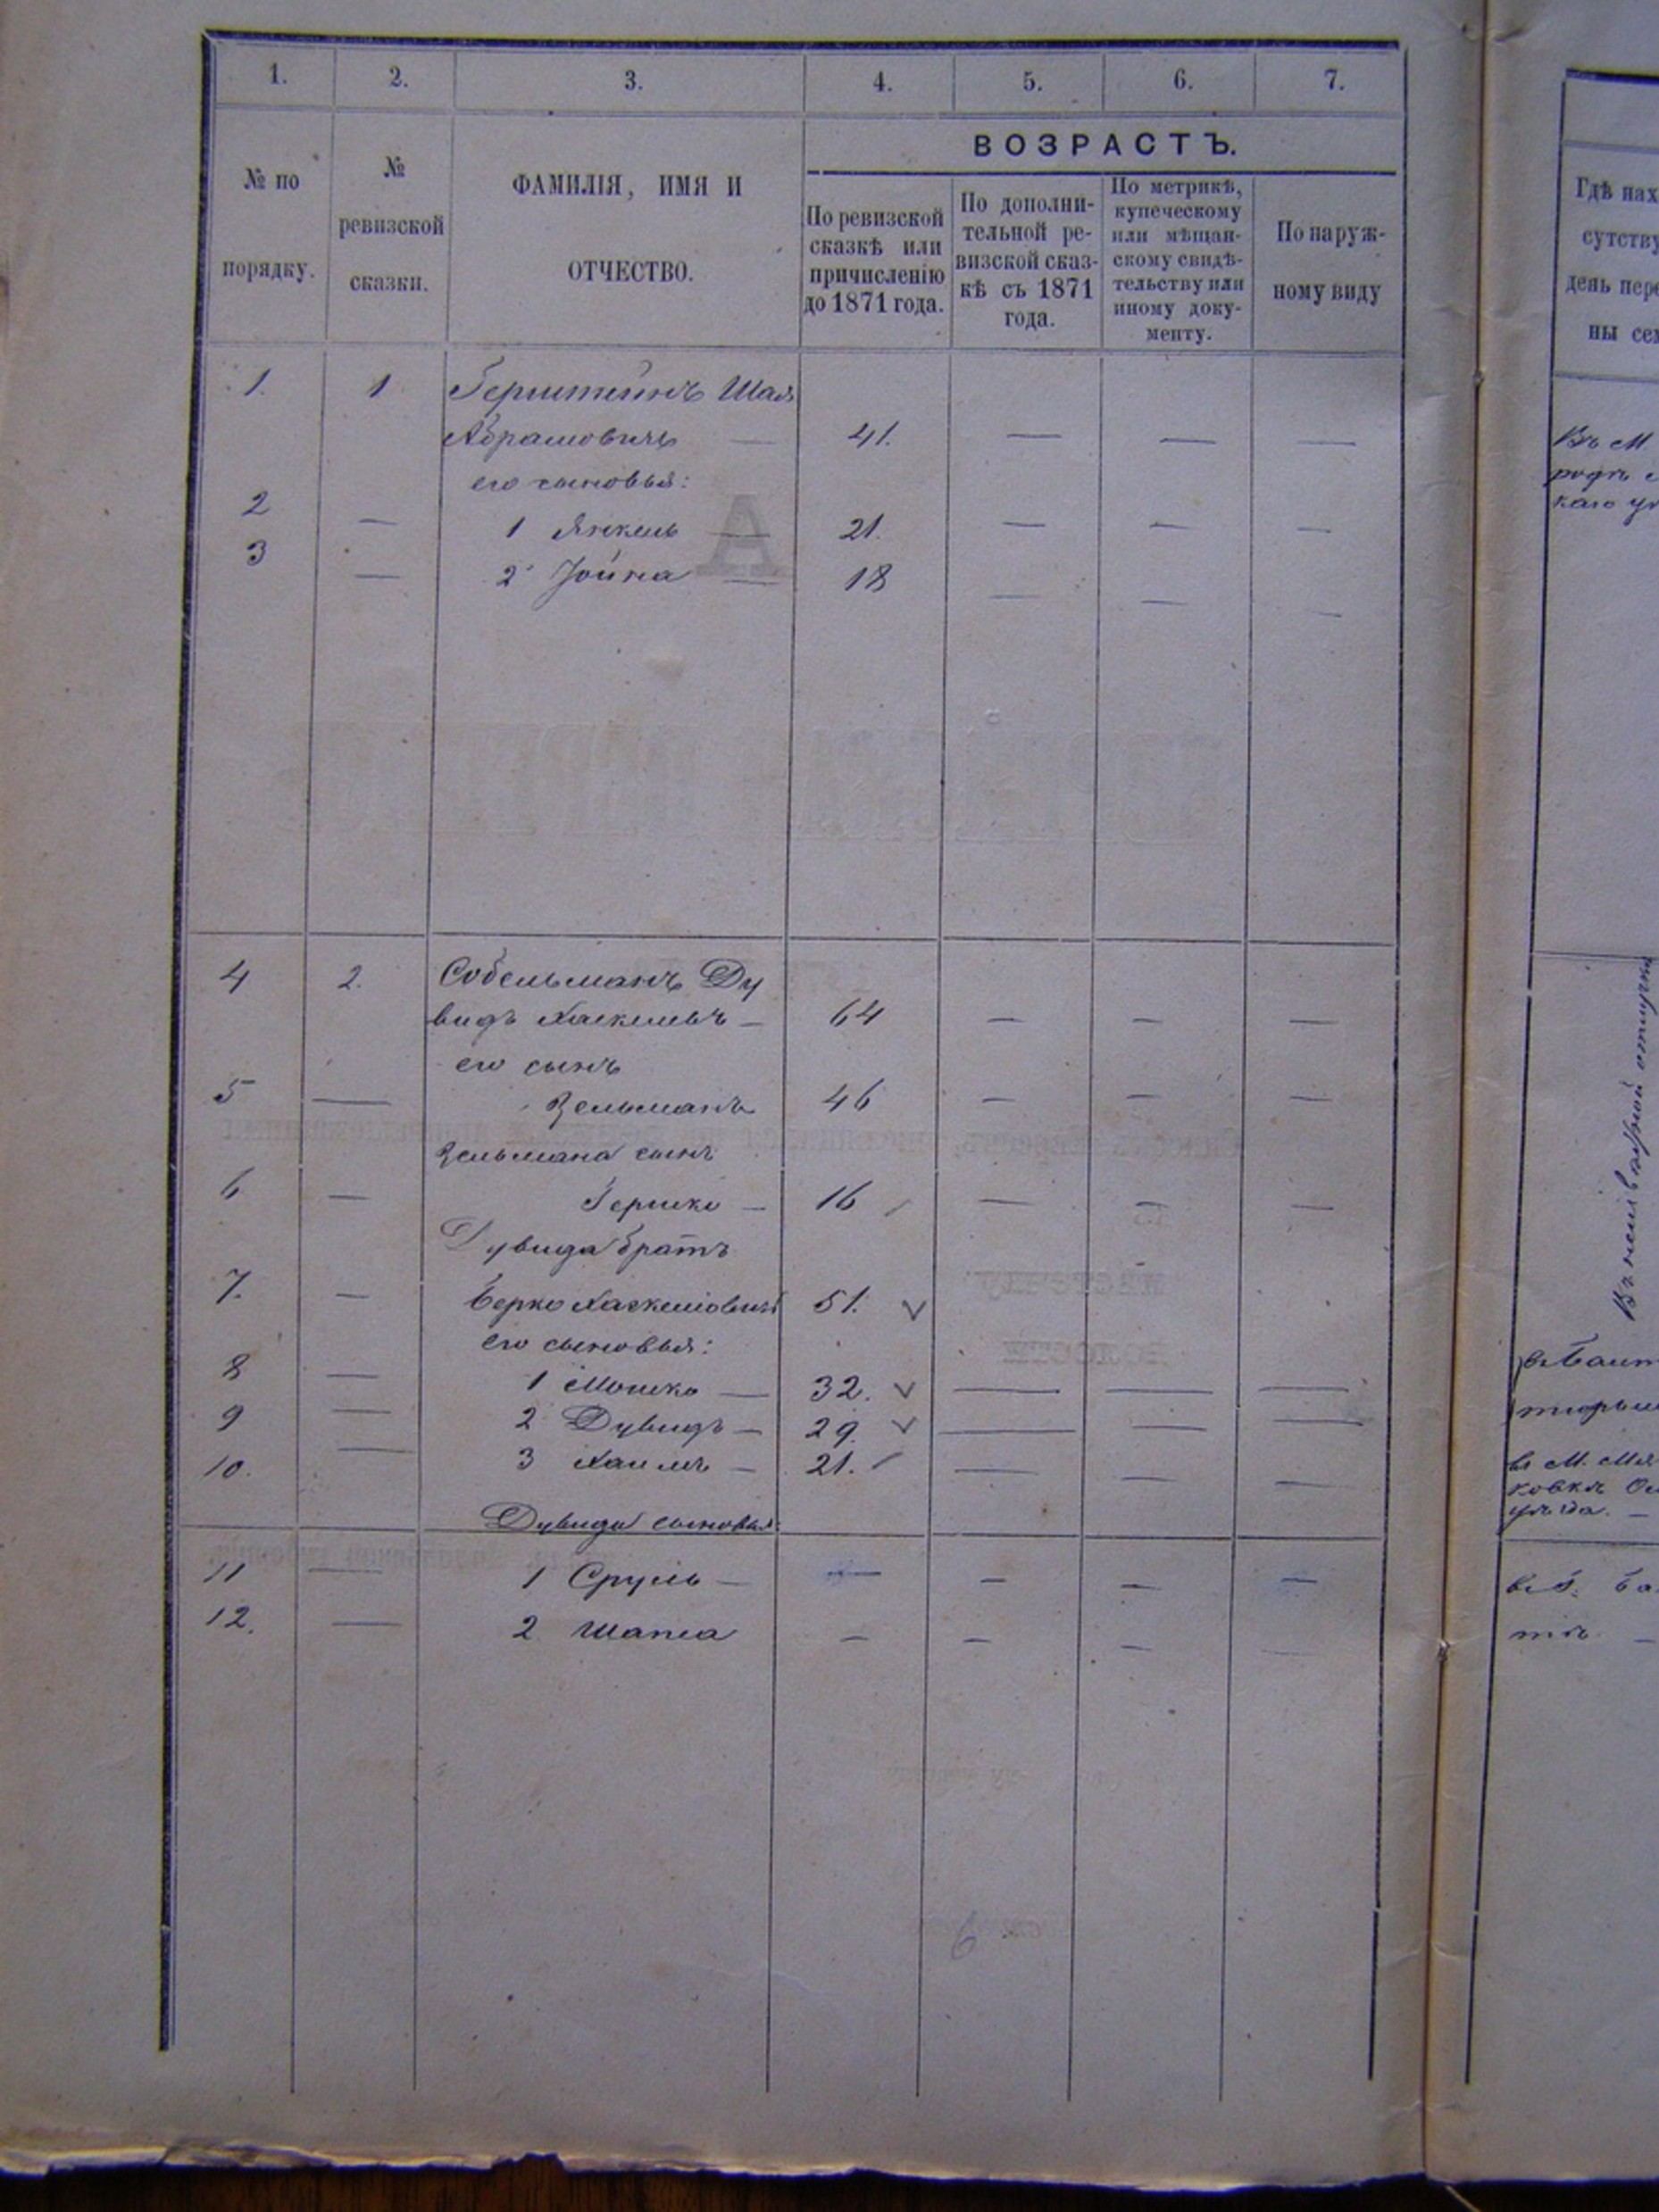 1. 2. 3. 4. 5. 6. 7.
№ по порядку.
№ ревизской сказки.
ФАМИЛІЯ, ИМЯ И
ОТЧЕСТВО.
ВОЗРАСТЪ.
По ревизской
сказкѣ или
причисленію
до 1871 года.
По дополни-
тельной ре-
визской сказ-
кѣ съ 1871
года.
По метрикѣ,
купеческому
или мѣщан-
скому свидѣ-
тельству или
иному доку-
менту.
По наруж-
ному виду
1. 1 Герштейнъ Шая
Абрамовичъ — 41. — — —
его сыновья:
2 — 1 Янкель — 21. — — —
3 — 2 Іойна — 18 — — —
4 2. Собельманъ Ду
видъ Хаскелевъ — 64 — — —
его сынъ
5 — Зельманъ 46 — — —
Зельмана сынъ
6 — Гершко — 16 — — —
Дувида братъ
7. — Берко Хаскелiовичъ 51. ✓
его сыновья:
8 — 1 Мошко — 32. ✓ — — —
9 — 2 Дувидъ — 29. ✓ — — —
10. — 3 Хаимъ — 21. — — —
Дувида сыновья:
11 — 1 Сруль — — — — —
12. — 2 Шапса — — — —
Гдѣ нах
сутству
день пере
ны се
Въ М.
каго у
Въ неизвѣстной отлучкѣ
въ М.